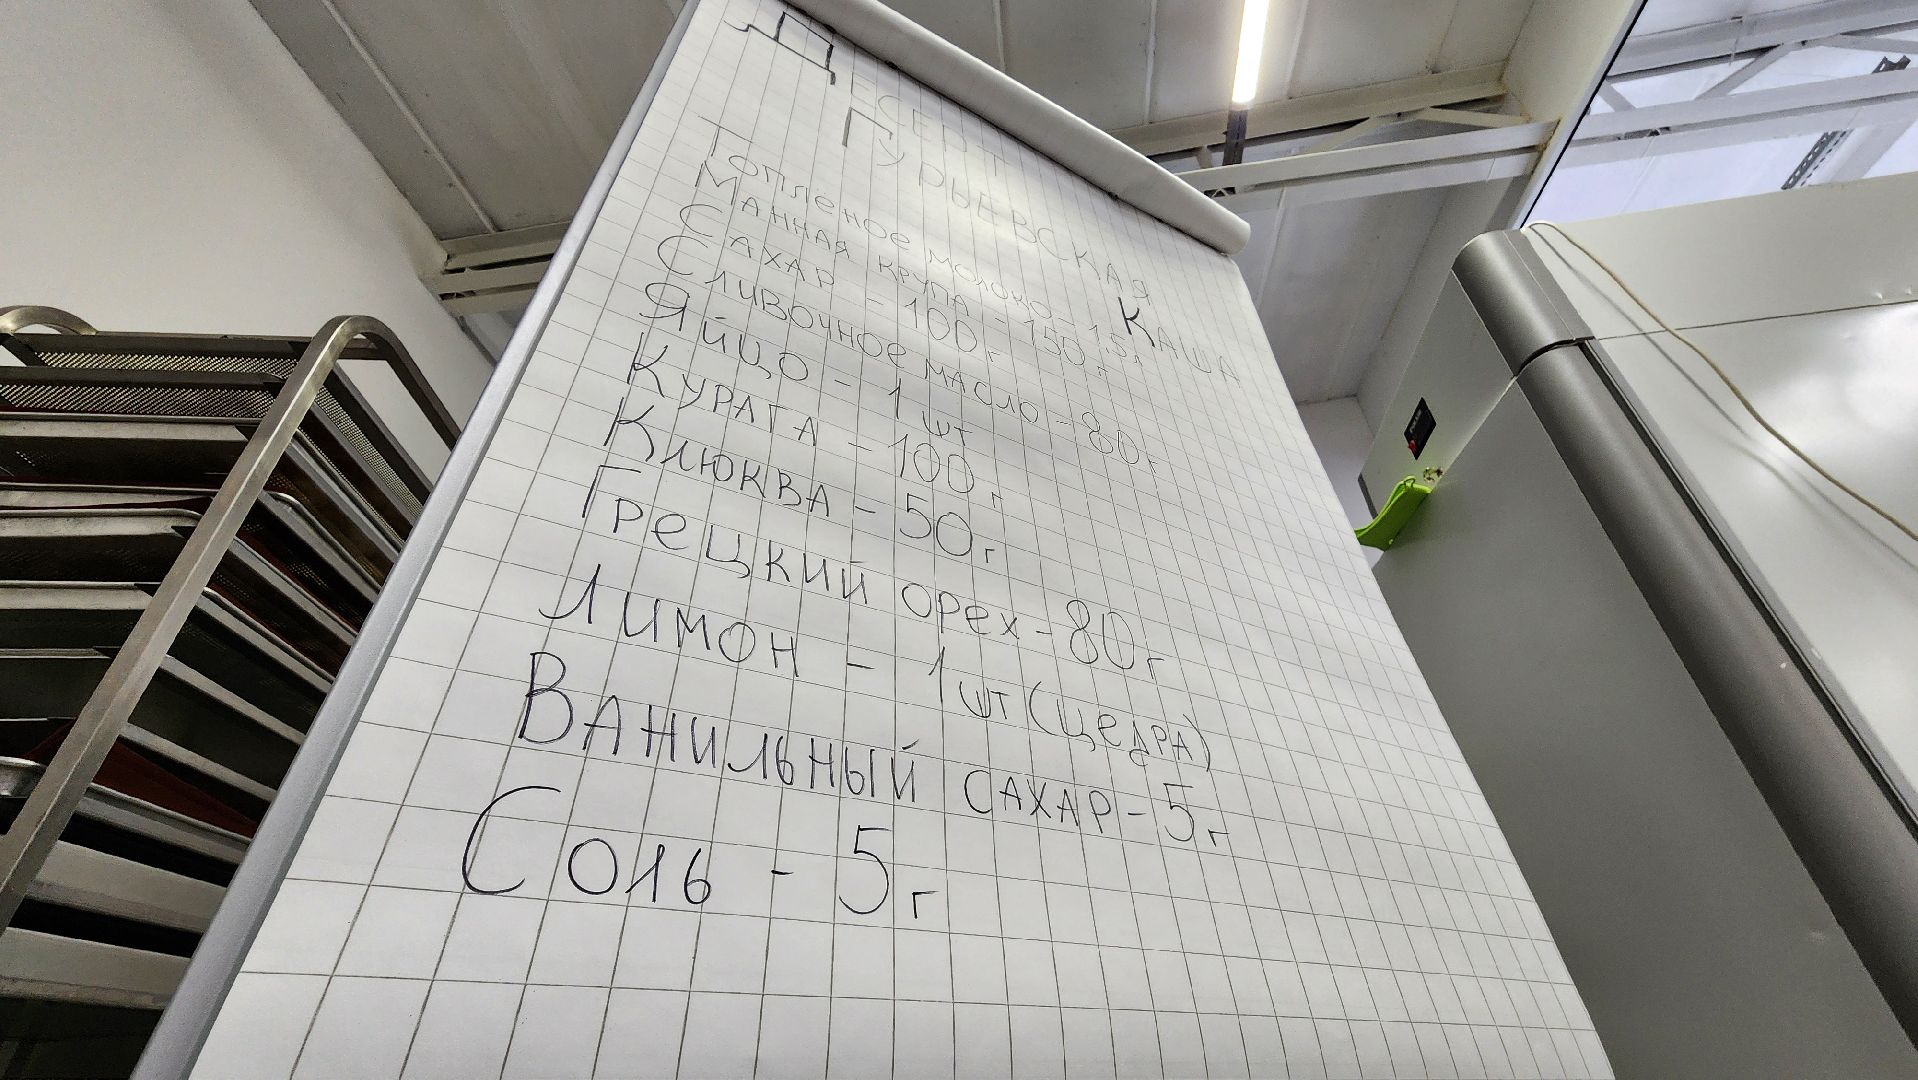 Десерт
Гурьевская Каша
Топленое молоко - 1.5 л
Манная крупа - 150 г
Сахар - 100 г
Сливочное масло - 80 г
Яйцо - 1 шт
Курага - 100 г
Клюква - 50 г
Грецкий орех - 80 г
Лимон - 1 шт (цедра)
Ванильный сахар - 5 г
Соль - 5 г